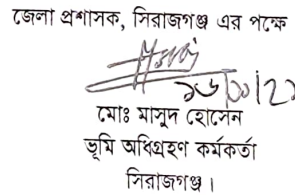 জেলা প্রশাসক, সিরাজগঞ্জ এর পক্ষে
মোঃ মাসুদ হোসেন
ভূমি অধিগ্রহণ কর্মকর্তা
সিরাজগঞ্জ।